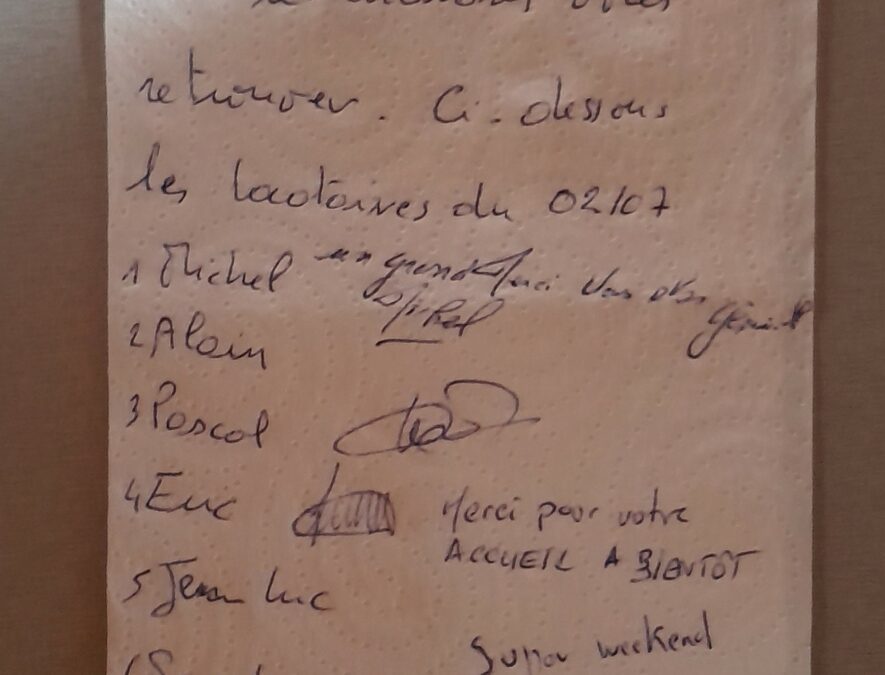 retrouver. Ci-dessous
les locataires du 02/07
1 Michel un grand Merci Vous êtes
génial
Michel
2 Alain
3 Pascal
4 Eric Merci pour votre
ACCUEIL A BIENTÔT
5 Jean Luc
Super weekend